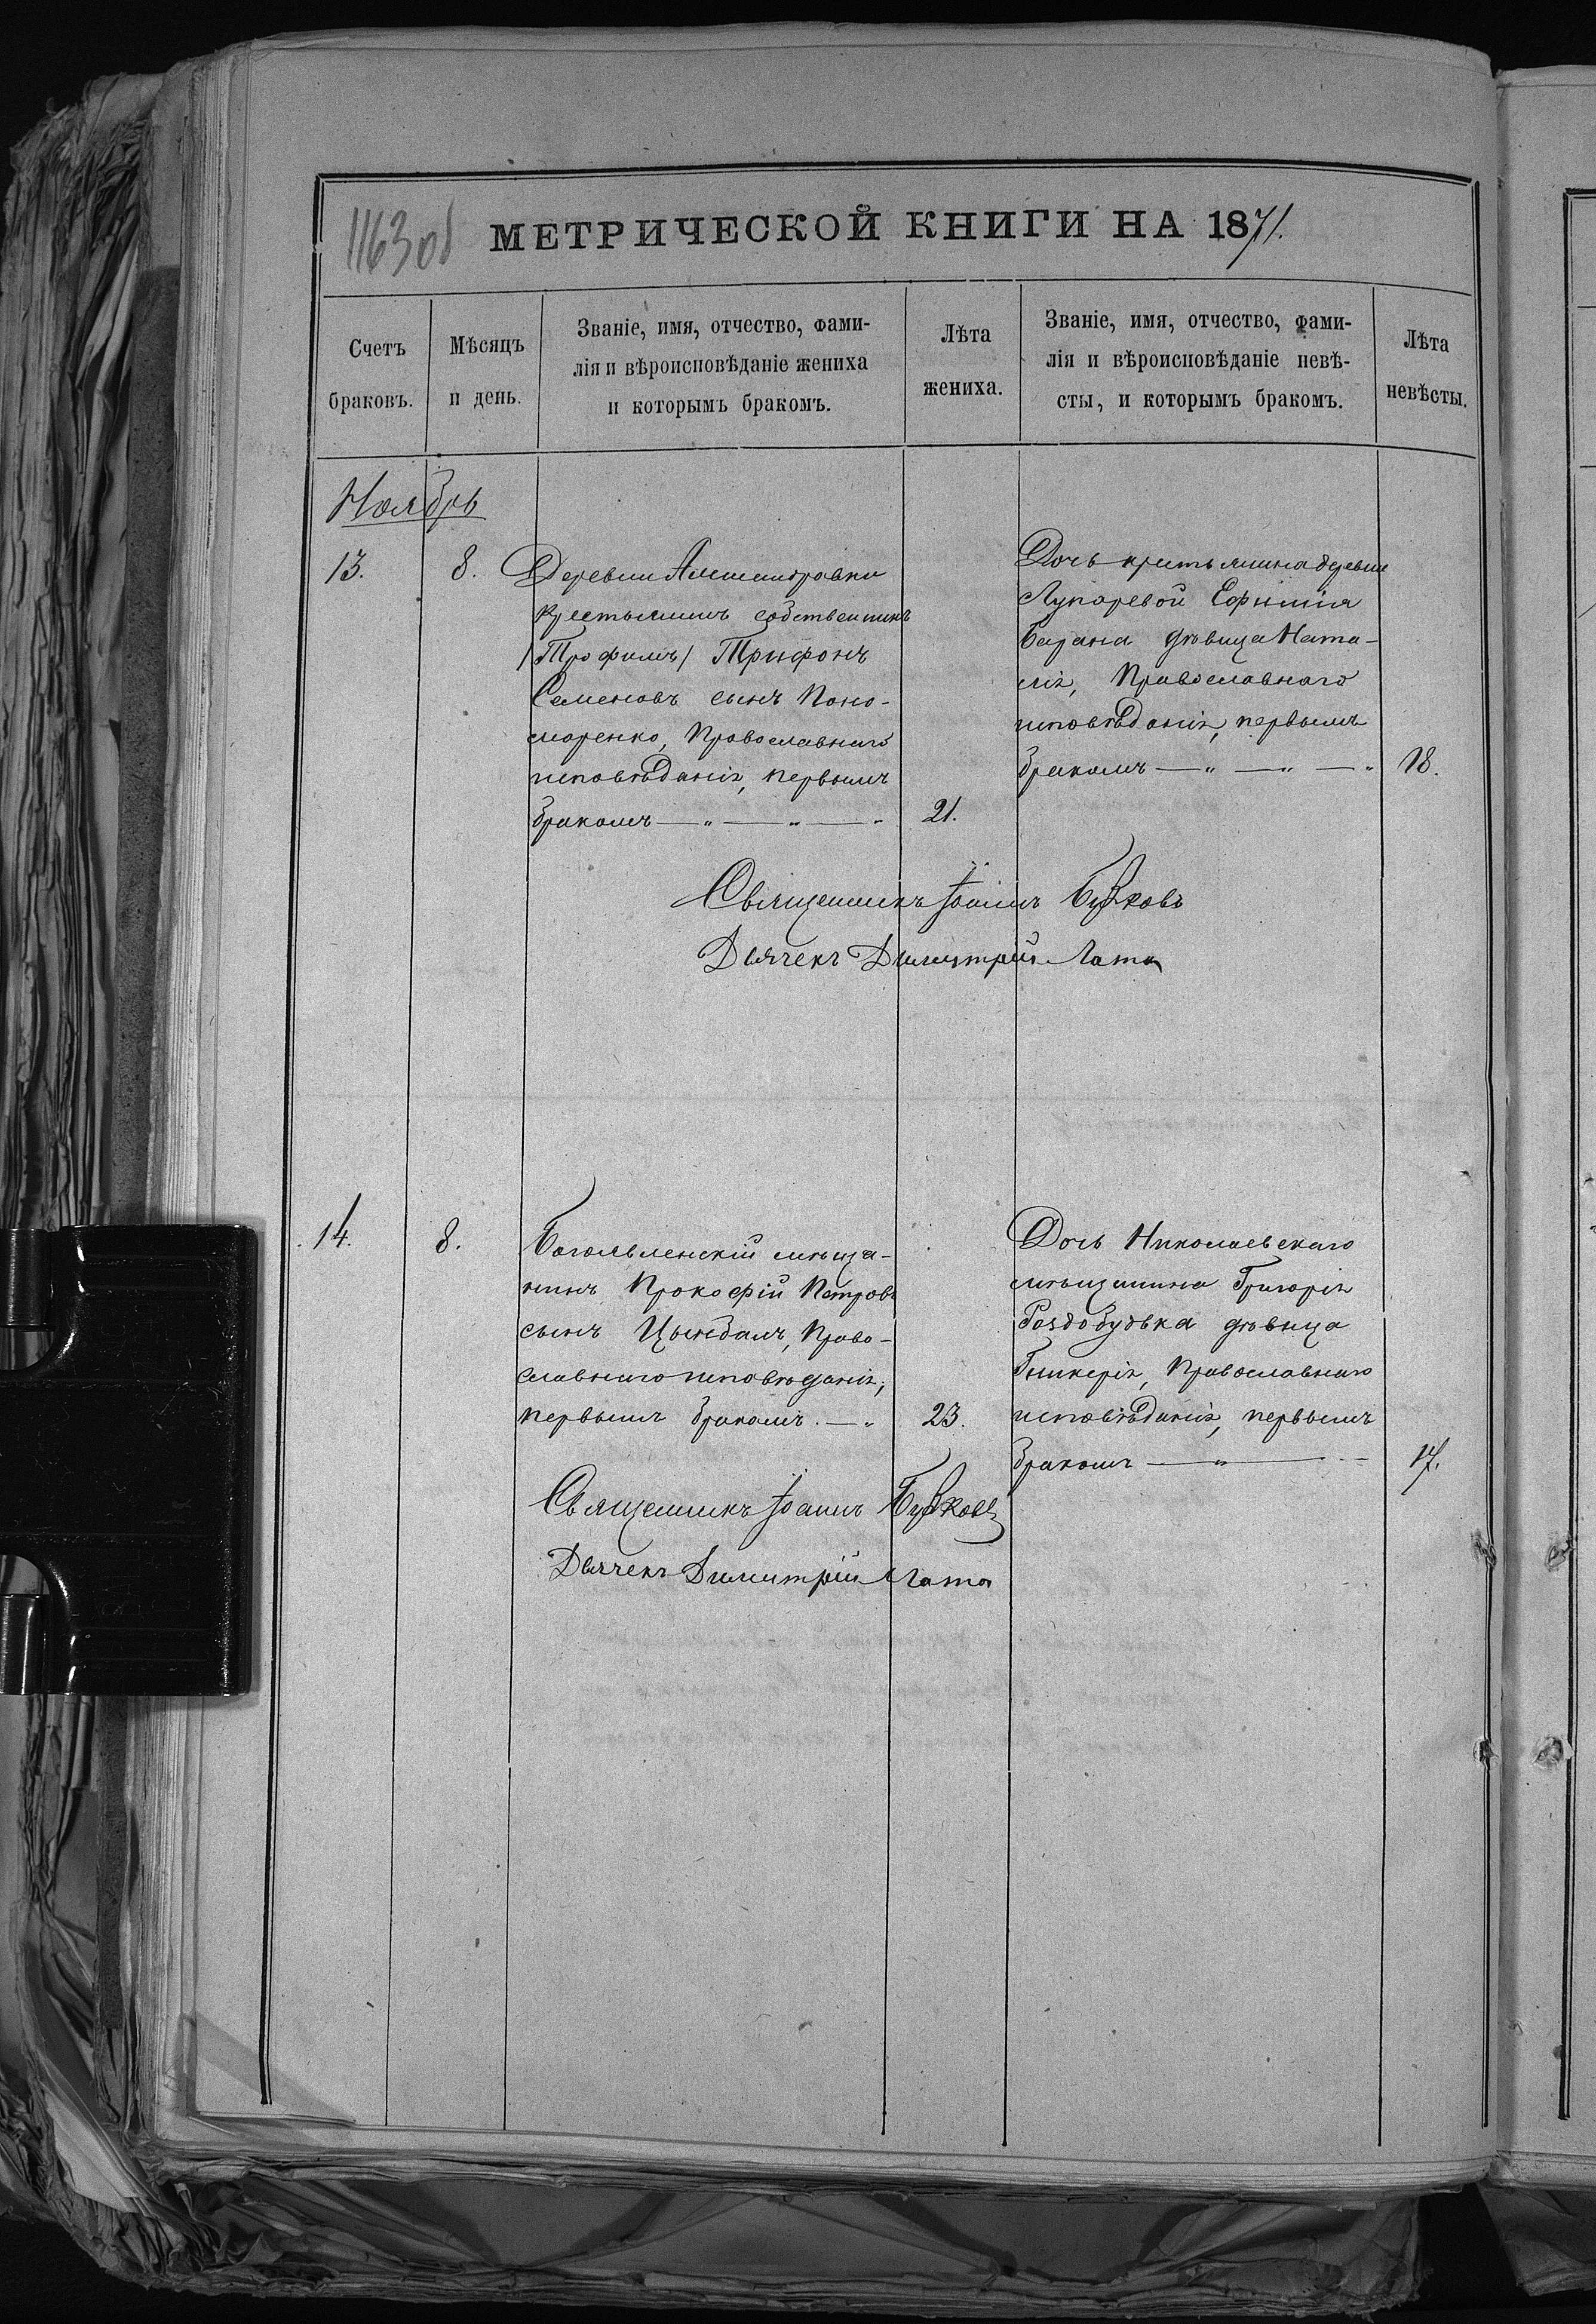 1163об МЕТРИЧЕСКОЙ КНИГИ НА 1871.
Счетъ
браковъ.
Мѣсяцъ
и день.
Званіе, имя, отчество, фами-
лія и вѣроисповѣданіе жениха
и которымъ бракомъ.
Лѣта
жениха.
Званіе, имя, отчество, фами-
лія и вѣроисповѣданіе невѣ-
сты, и которымъ бракомъ.
Лѣта
невѣсты.
Ноябрь
13.
8.
Деревни Александровки
крестьянинъ собственникъ
/Трофимъ/ Трифонъ
Семеновъ сынъ Поно-
маренко, Православнаго
исповѣданія, первымъ
бракомъ — „ — „ — „
21.
Дочь крестьянина деревни
Лупаревой Ефимія
Барана дѣвица Ната-
лія, Православнаго
исповѣданія, первымъ
бракомъ — „ — „ — „
18.
Священникъ Іоаннъ
Дьячекъ Димитрій Лата
14.
8.
Богоявленскій мѣща-
нинъ Прокофій Петровъ
сынъ Цымбалъ, Право-
славнаго исповѣданія,
первымъ бракомъ. — „
23.
Дочь Николаевскаго
мѣщанина Григорія
Роздобудька дѣвица
Гликерія, Православнаго
исповѣданія, первымъ
бракомъ — „ —
17.
Священникъ Іоаннъ
Дьячекъ Димитрій Лата